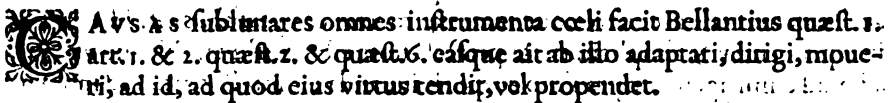 CAVSAS sublunares omnes instrumenta cœli facit Bellantius quæst. 1.
art. 1. & 2. quæst. 2. & quæst. 6. eásque ait ab illo adaptari, dirigi, moue-
ri, ad id, ad quod eius virtus tendit, vel propendet.